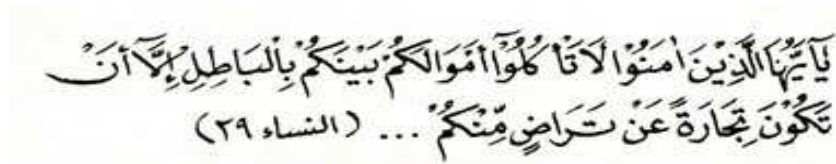 يٰٓاَيُّهَا الَّذِيْنَ اٰمَنُوْا لَا تَأْ كُلُوْٓا اَمْوَالَكُمْ بَيْنَكُمْ بِالْبَاطِلِ اِلَّآ اَنْ
تَكُوْنَ تِجَارَةً عَنْ تَرَاضٍ مِّنْكُمْ ... (النساء ٢٩)